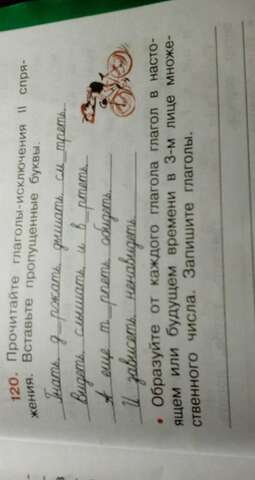 120. Прочитайте глаголы-исключения II спря-
жения. Вставьте пропущенные буквы.
Гнать д_ржать дышать см_треть
Видеть слышать и в_ртеть
А еще т_рпеть обидеть
И зависеть ненавидеть
• Образуйте от каждого глагола глагол в насто-
ящем или будущем времени в 3-м лице множе-
ственного числа. Запишите глаголы.